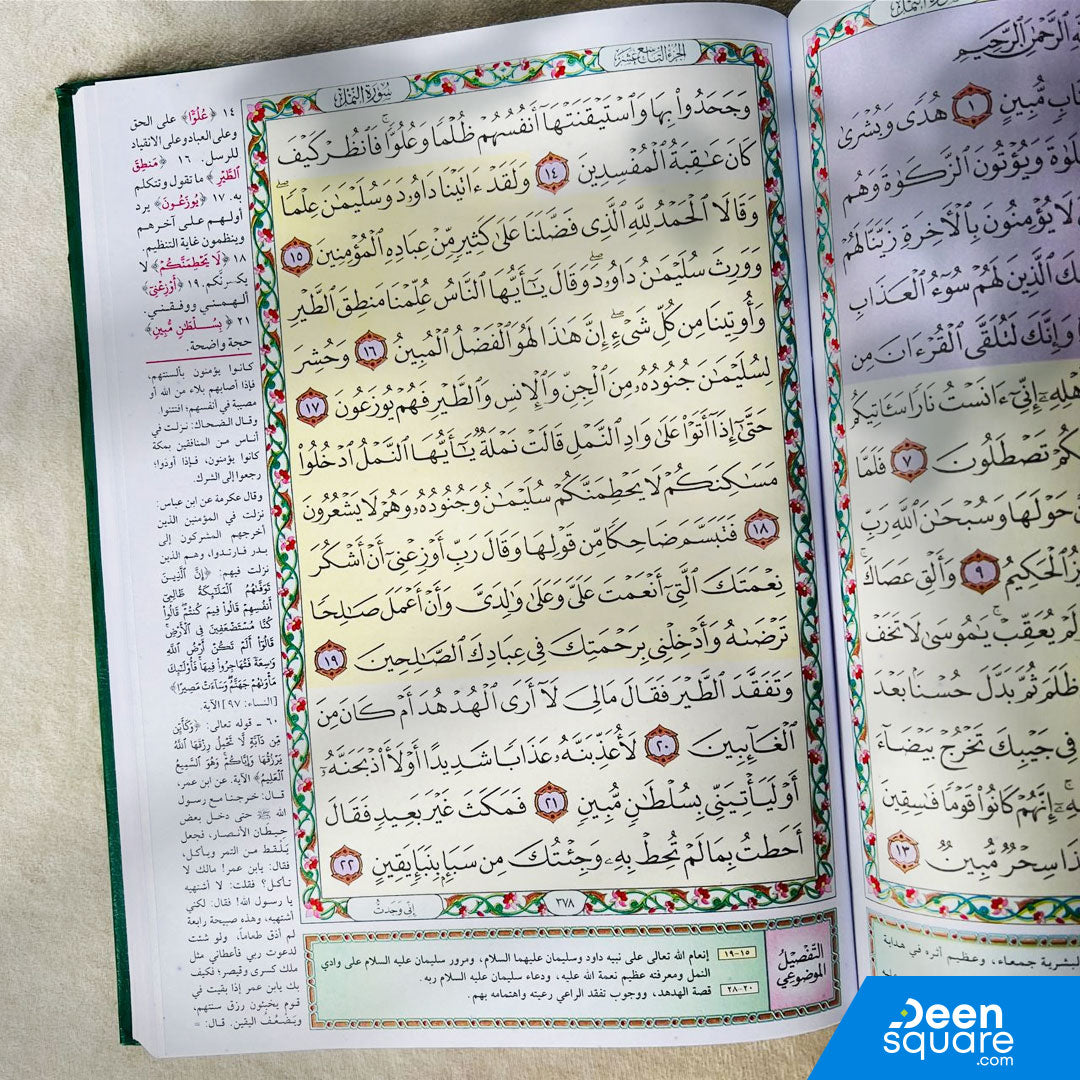 سُورَةُ النَّمْلِ
الجُزْءُ التَّاسِعُ عَشَرَ
وَجَحَدُوا۟ بِهَا وَٱسْتَيْقَنَتْهَآ أَنفُسُهُمْ ظُلْمًا وَعُلُوًّا ۚ فَٱنظُرْ كَيْفَ
كَانَ عَـٰقِبَةُ ٱلْمُفْسِدِينَ ١٤ وَلَقَدْ ءَاتَيْنَا دَاوُۥدَ وَسُلَيْمَـٰنَ عِلْمًا ۖ
وَقَالَا ٱلْحَمْدُ لِلَّهِ ٱلَّذِى فَضَّلَنَا عَلَىٰ كَثِيرٍ مِّنْ عِبَادِهِ ٱلْمُؤْمِنِينَ ١٥
وَوَرِثَ سُلَيْمَـٰنُ دَاوُۥدَ ۖ وَقَالَ يَـٰٓأَيُّهَا ٱلنَّاسُ عُلِّمْنَا مَنطِقَ ٱلطَّيْرِ
وَأُوتِينَا مِن كُلِّ شَىْءٍ ۖ إِنَّ هَـٰذَا لَهُوَ ٱلْفَضْلُ ٱلْمُبِينُ ١٦ وَحُشِرَ
لِسُلَيْمَـٰنَ جُنُودُهُۥ مِنَ ٱلْجِنِّ وَٱلْإِنسِ وَٱلطَّيْرِ فَهُمْ يُوزَعُونَ ١٧
حَتَّىٰٓ إِذَآ أَتَوْا۟ عَلَىٰ وَادِ ٱلنَّمْلِ قَالَتْ نَمْلَةٌ يَـٰٓأَيُّهَا ٱلنَّمْلُ ٱدْخُلُوا۟
مَسَـٰكِنَكُمْ لَا يَحْطِمَنَّكُمْ سُلَيْمَـٰنُ وَجُنُودُهُۥ وَهُمْ لَا يَشْعُرُونَ
١٨ فَتَبَسَّمَ ضَاحِكًا مِّن قَوْلِهَا وَقَالَ رَبِّ أَوْزِعْنِىٓ أَنْ أَشْكُرَ
نِعْمَتَكَ ٱلَّتِىٓ أَنْعَمْتَ عَلَىَّ وَعَلَىٰ وَٰلِدَىَّ وَأَنْ أَعْمَلَ صَـٰلِحًا
تَرْضَىٰهُ وَأَدْخِلْنِى بِرَحْمَتِكَ فِى عِبَادِكَ ٱلصَّـٰلِحِينَ ١٩
وَتَفَقَّدَ ٱلطَّيْرَ فَقَالَ مَالِىَ لَآ أَرَى ٱلْهُدْهُدَ أَمْ كَانَ مِنَ
ٱلْغَآئِبِينَ ٢٠ لَأُعَذِّبَنَّهُۥ عَذَابًا شَدِيدًا أَوْ لَأَا۟ذْبَحَنَّهُۥٓ
أَوْ لَيَأْتِيَنِّى بِسُلْطَـٰنٍ مُّبِينٍ ٢١ فَمَكَثَ غَيْرَ بَعِيدٍ فَقَالَ
أَحَطتُ بِمَا لَمْ تُحِطْ بِهِۦ وَجِئْتُكَ مِن سَبَإٍۭ بِنَبَإٍ يَقِينٍ ٢٢
إِنِّى وَجَدتُّ
٣٧٨
التَّفْصِيلُ
المَوْضُوعِي
١٥-١٩ إنعام الله تعالى على نبيه داود وسليمان عليهما السلام، ومرور سليمان عليه السلام على وادي
النمل ومعرفته عظيم نعمة الله عليه، ودعاء سليمان عليه السلام ربه.
٢٠-٢٨ قصة الهدهد، ووجوب تفقد الراعي رعيته واهتمامه بهم.
١٤ ﴿عُلُوًّا﴾ على الحق
وعلى العباد وعلى الانقياد
للرسل. ١٦ ﴿مَنطِقَ
ٱلطَّيْرِ﴾ ما تقول وتتكلم
به. ١٧ ﴿يُوزَعُونَ﴾ يرد
أولهم على آخرهم
وينظمون غاية التنظيم.
١٨ ﴿لَا يَحْطِمَنَّكُمْ﴾ لا
يكسرنكم. ١٩ ﴿أَوْزِعْنِىٓ﴾
ألهمني ووفقني.
٢١ ﴿بِسُلْطَـٰنٍ مُّبِينٍ﴾
حجة واضحة.
كانوا يؤمنون بألسنتهم،
فإذا أصابهم بلاء من الله أو
مصيبة في أنفسهم؛ افتتنوا.
وقال الضحاك: نزلت في
أناس من المنافقين بمكة
كانوا يؤمنون، فإذا أوذوا؛
رجعوا إلى الشرك.
وقال عكرمة عن ابن عباس:
نزلت في المؤمنين الذين
أخرجهم المشركون إلى
بدر فارتدوا، وهم الذين
نزلت فيهم: ﴿إِنَّ ٱلَّذِينَ
تَوَفَّىٰهُمُ ٱلْمَلَـٰٓئِكَةُ ظَالِمِىٓ
أَنفُسِهِمْ قَالُوا۟ فِيمَ كُنتُمْ ۖ قَالُوا۟
كُنَّا مُسْتَضْعَفِينَ فِى ٱلْأَرْضِ ۚ
قَالُوٓا۟ أَلَمْ تَكُنْ أَرْضُ ٱللَّهِ
وَٰسِعَةً فَتُهَاجِرُوا۟ فِيهَا ۚ فَأُو۟لَـٰٓئِكَ
مَأْوَىٰهُمْ جَهَنَّمُ ۖ وَسَآءَتْ مَصِيرًا﴾
[النساء: ٩٧] الآية.
٦٠ ـ قوله تعالى: ﴿وَكَأَيِّن
مِّن دَآبَّةٍ لَّا تَحْمِلُ رِزْقَهَا ٱللَّهُ
يَرْزُقُهَا وَإِيَّاكُمْ ۚ وَهُوَ ٱلسَّمِيعُ
ٱلْعَلِيمُ﴾ الآية. عن ابن عمر،
قال: خرجنا مع رسول
الله ﷺ حتى دخل بعض
حيطان الأنصار، فجعل
يلقط من التمر ويأكل،
فقال: يابن عمر! مالك لا
تأكل؟ فقلت: لا أشتهيه
يا رسول الله! فقال: لكني
أشتهيه، وهذه صبيحة رابعة
لم أذق طعاماً، ولو شئت
لدعوت ربي فأعطاني مثل
ملك كسرى وقيصر؛ فكيف
بك يابن عمر إذا بقيت في
قوم يخبئون رزق سنتهم
ويضعف اليقين. قال: =
ٱلرَّحْمَـٰنِ ٱلرَّحِيمِ
مُّبِينٍ ١ هُدًى وَبُشْرَىٰ
وَيُؤْتُونَ ٱلزَّكَوٰةَ وَهُم
لَا يُؤْمِنُونَ بِٱلْـَٔاخِرَةِ زَيَّنَّا لَهُمْ
ٱلَّذِينَ لَهُمْ سُوٓءُ ٱلْعَذَابِ
وَإِنَّكَ لَتُلَقَّى ٱلْقُرْءَانَ مِن
إِنِّىٓ ءَانَسْتُ نَارًا سَـَٔاتِيكُم
تَصْطَلُونَ ٧ فَلَمَّا
حَوْلَهَا وَسُبْحَـٰنَ ٱللَّهِ رَبِّ
ٱلْحَكِيمُ ٩ وَأَلْقِ عَصَاكَ
لَمْ يُعَقِّبْ ۚ يَـٰمُوسَىٰ لَا تَخَفْ
ظَلَمَ ثُمَّ بَدَّلَ حُسْنًۢا بَعْدَ
فِى جَيْبِكَ تَخْرُجْ بَيْضَآءَ
إِنَّهُمْ كَانُوا۟ قَوْمًا فَـٰسِقِينَ
سِحْرٌ مُّبِينٌ ١٣
البشرية جمعاء، وعظيم أثره في هداية
Deen
square
.com